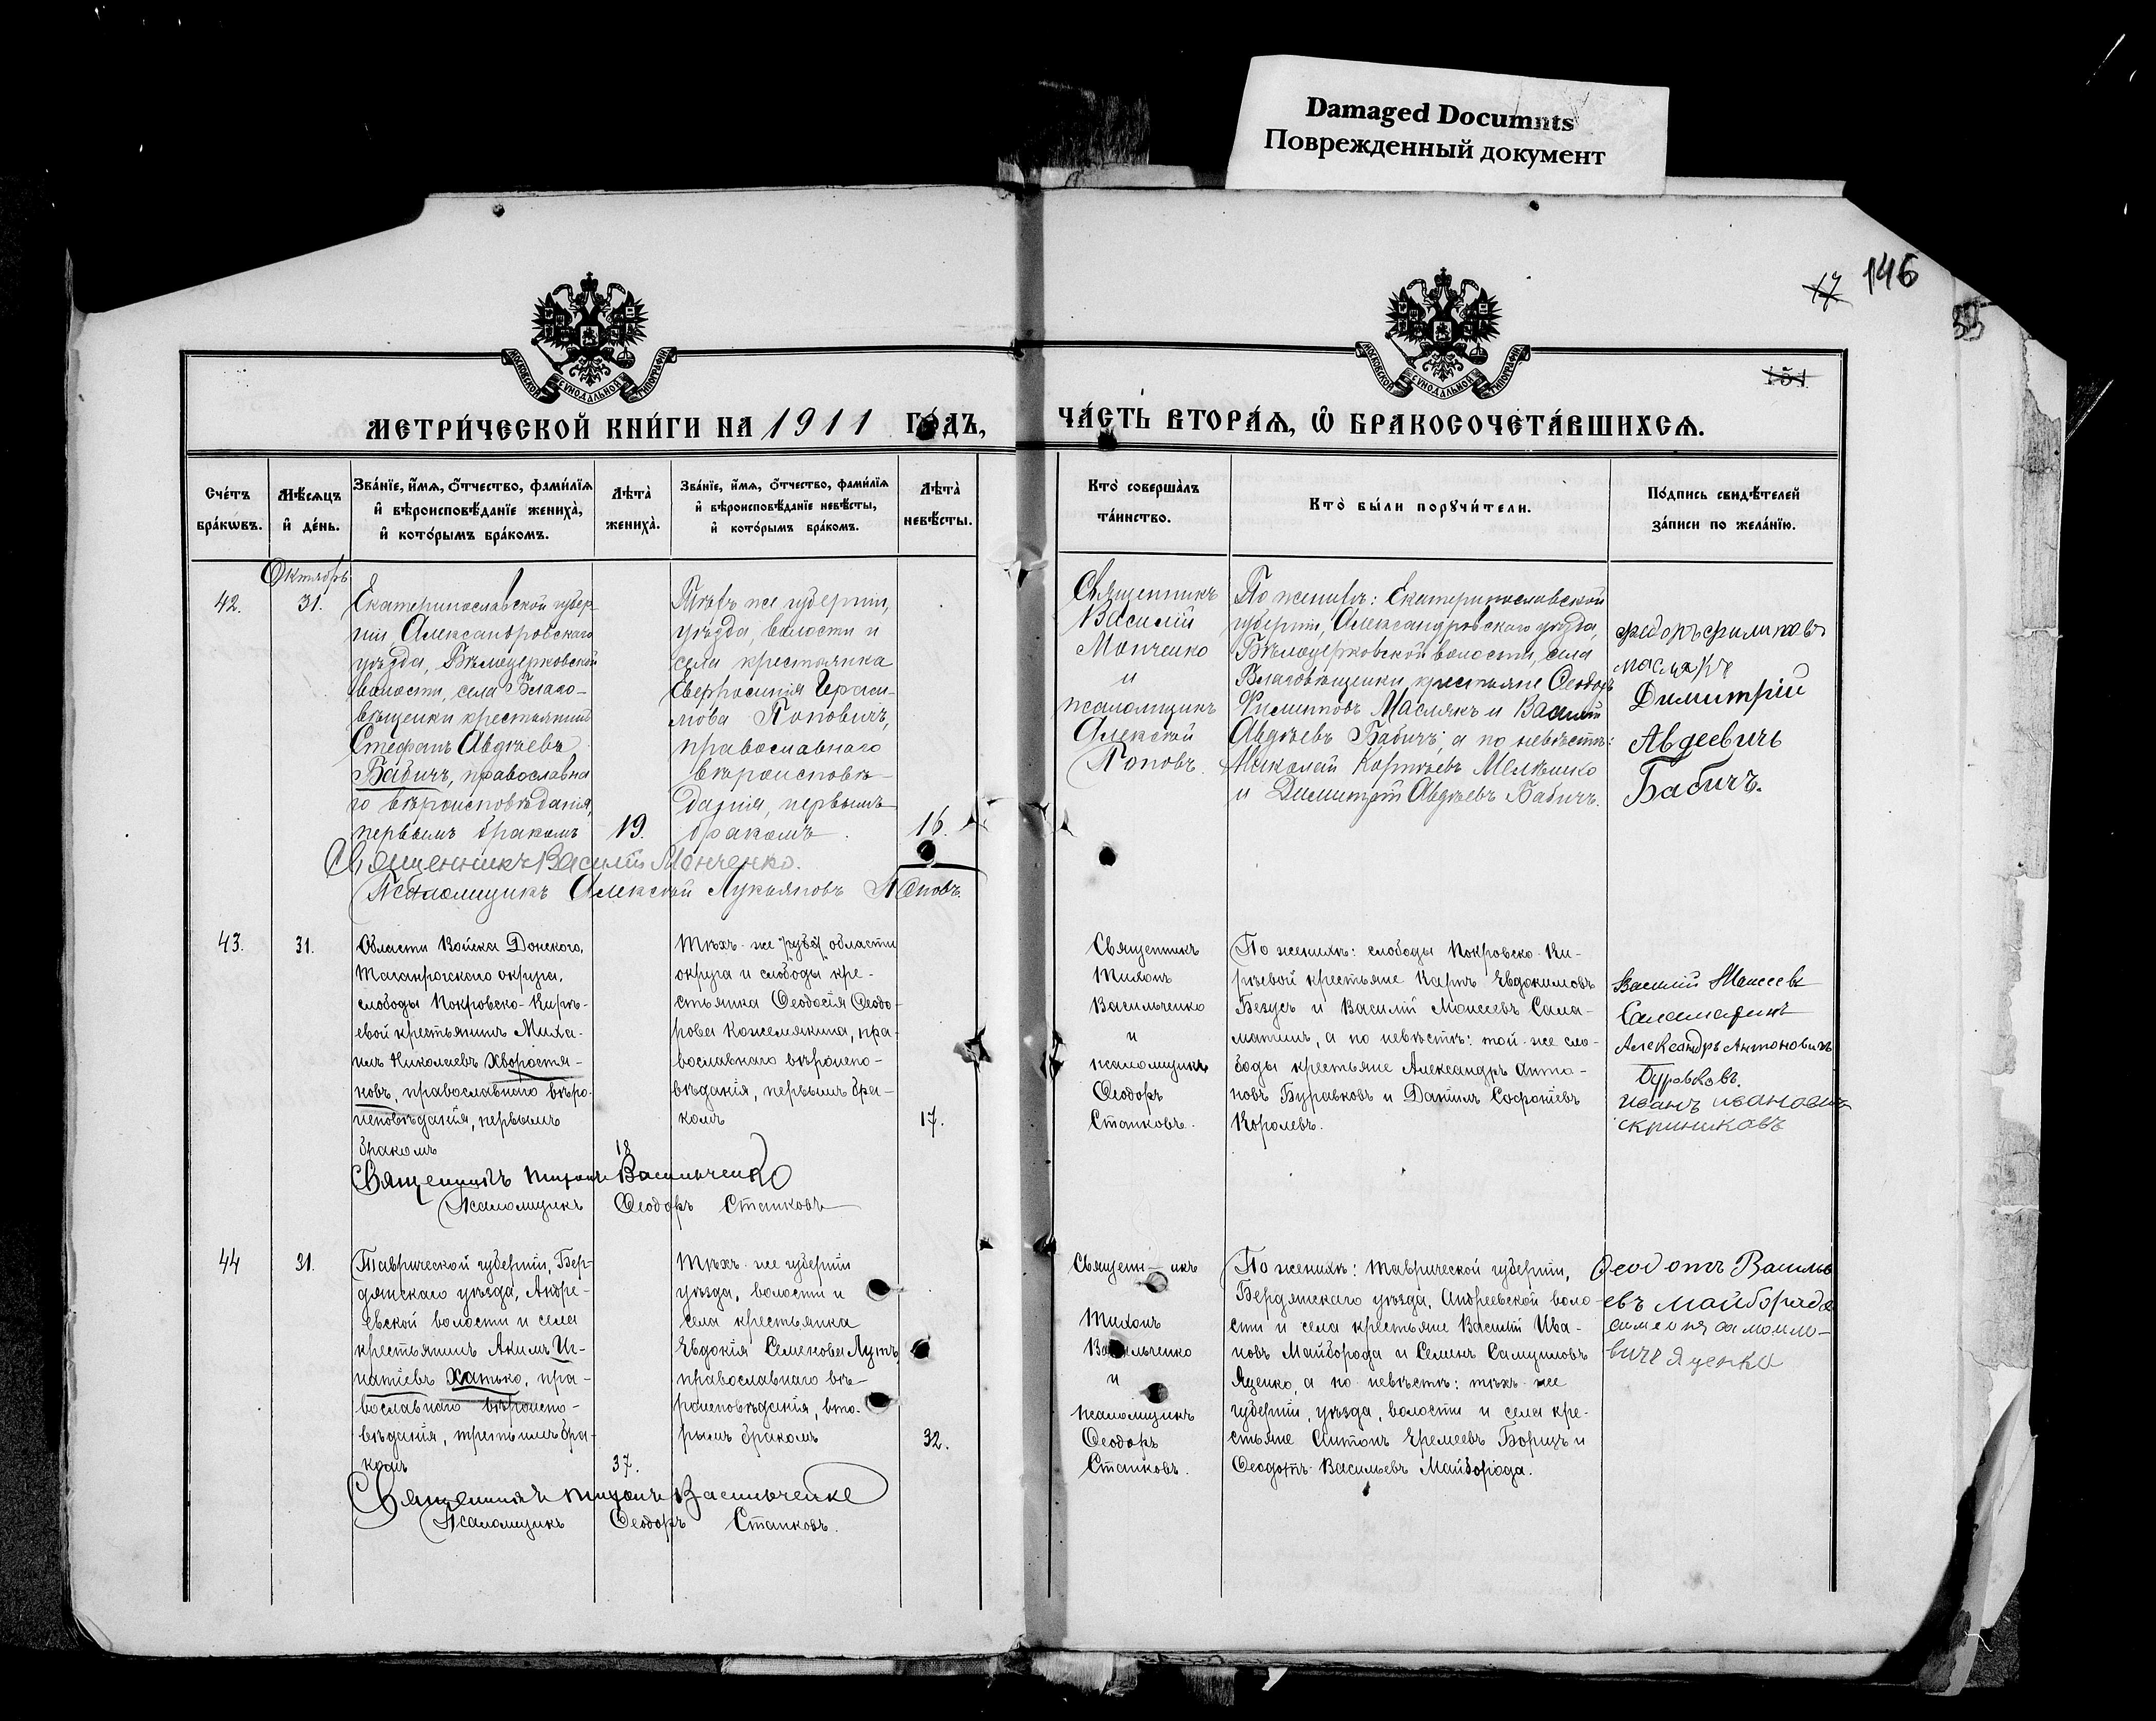 Damaged Documnts
Поврежденный документ
17
146
МОСКОВСКОЙ СѴНОДАЛЬНОЙ ТИПОГРАФІИ
МОСКОВСКОЙ СѴНОДАЛЬНОЙ ТИПОГРАФІИ
151
МЕТРИ́ЧЕСКОЙ КНИ́ГИ НА 1911 ГО́ДЪ,
ЧА́СТЬ ВТОРА́Ѧ, Ѡ БРАКОСОЧЕТА́ВШИХСѦ.
Сче́тъ
бра́кѡвъ.
Мѣ́сяцъ
и де́нь.
Зва́нїе, и́мѧ, о́тчество, фами́лїѧ
и вѣроисповѣ́данїе жениха̀,
и кото́рымъ бра́комъ.
Лѣта̀
жениха̀.
Зва́нїе, и́мѧ, о́тчество, фами́лїѧ
и вѣроисповѣ́данїе невѣ́сты,
и кото́рымъ бра́комъ.
Лѣта̀
невѣ́сты.
Кто̀ соверша́лъ
та́инство.
Кто̀ бы́ли порꙋчи́тели.
По́дпись свидѣ́телей
за́писи по жела́нїю.
Октябрь
42.
31.
Екатеринославской губер-
ніи Александровскаго
уѣзда, Бѣлоцерковской
волости, села Благо-
вѣщенки крестьянинъ
Стефанъ Авдѣевъ
Бабичъ, православна
го вѣроисповѣданія,
первымъ бракомъ
19.
Тѣхъ же губерніи,
уѣзда, волости и
села крестьянка
Евфросинія Гераси-
мова Поповичъ,
православнаго
вѣроисповѣ-
данія, первымъ
бракомъ.
16.
Священникъ
Василій
Монченко
и
псаломщикъ
Алексѣй
Поповъ.
По женихѣ: Екатеринославской
губерніи, Александровскаго уѣзда,
Бѣлоцерковской волости, села
Благовѣщенки, крестьяне Ѳеодоръ
Филипповъ Маслякъ и Василій
Авдѣевъ Бабичъ; а по невѣстѣ:
Николай Корнѣевъ Мелешко
и Димитрій Авдѣевъ Бабичъ.
Федоръ филиповъ
маслякъ
Димитрій
Авдеевичь
Бабичъ.
Священникъ Василій Монченко.
Псаломщикъ Алексѣй Лукьяновъ Поповъ.
43.
31.
Области Войска Донского,
Таганрогскаго округа,
слободы Покровско-Кирѣ-
евой крестьянинъ Миха-
илъ Николаевъ Хворостя-
новъ, православнаго вѣро-
исповѣданія, первымъ
бракомъ
18
Тѣхъ же области
округа и слободы кре-
стьянка Ѳеодосія Ѳеодо-
рова Кожемякина, пра-
вославнаго вѣроиспо-
вѣданія, первымъ бра-
комъ
17.
Священникъ
Тихонъ
Васильченко
и
псаломщикъ
Ѳеодоръ
Станковъ.
По женихѣ: слободы Покровско-Ки-
рѣевой крестьяне Карпъ Евдокимовъ
Безусъ и Василій Моисеевъ Сала-
матинъ, а по невѣстѣ: той-же сло-
боды крестьяне Александръ Анто-
новъ Буравковъ и Даніилъ Софоніевъ
Королевъ.
Василій Моисеевъ
Саламатинъ
Александръ Антоновичъ
Буравковъ.
иванъ ивановичъ
скриниковъ
Священникъ Тихонъ Васильченко
Псаломщикъ Ѳеодоръ Станковъ
44
31.
Таврической губерніи, Бер-
дянскаго уѣзда, Андре-
евской волости и села
крестьянинъ Акимъ Иг-
натіевъ Хатько, пра-
вославнаго вѣроиспо-
вѣданія, третьимъ бра-
комъ
37.
Тѣхъ-же губерніи
уѣзда, волости и
села крестьянка
Евдокія Семенова Лутъ,
православнаго вѣ-
роисповѣданія, вто-
рымъ бракомъ
32.
Священн-икъ
Тихонъ
Васильченко
и
псаломщикъ
Ѳеодоръ
Станковъ.
По женихѣ: Таврической губерніи,
Бердянскаго уѣзда, Андреевской воло-
сти и села крестьяне Василій Ива-
новъ Майборода и Семенъ Самуиловъ
Яценко, а по невѣстѣ: тѣхъ-же
губерніи, уѣзда, волости и села кре-
стьяне Антонъ Еремеевъ Борицъ и
Ѳеодотъ Васильевъ Майборода.
Ѳеодотъ Василь
евъ Майборода
симеонъ самоило-
вичъ Яценко
Священникъ Тихонъ Васильченко
Псаломщикъ Ѳеодоръ Станковъ.